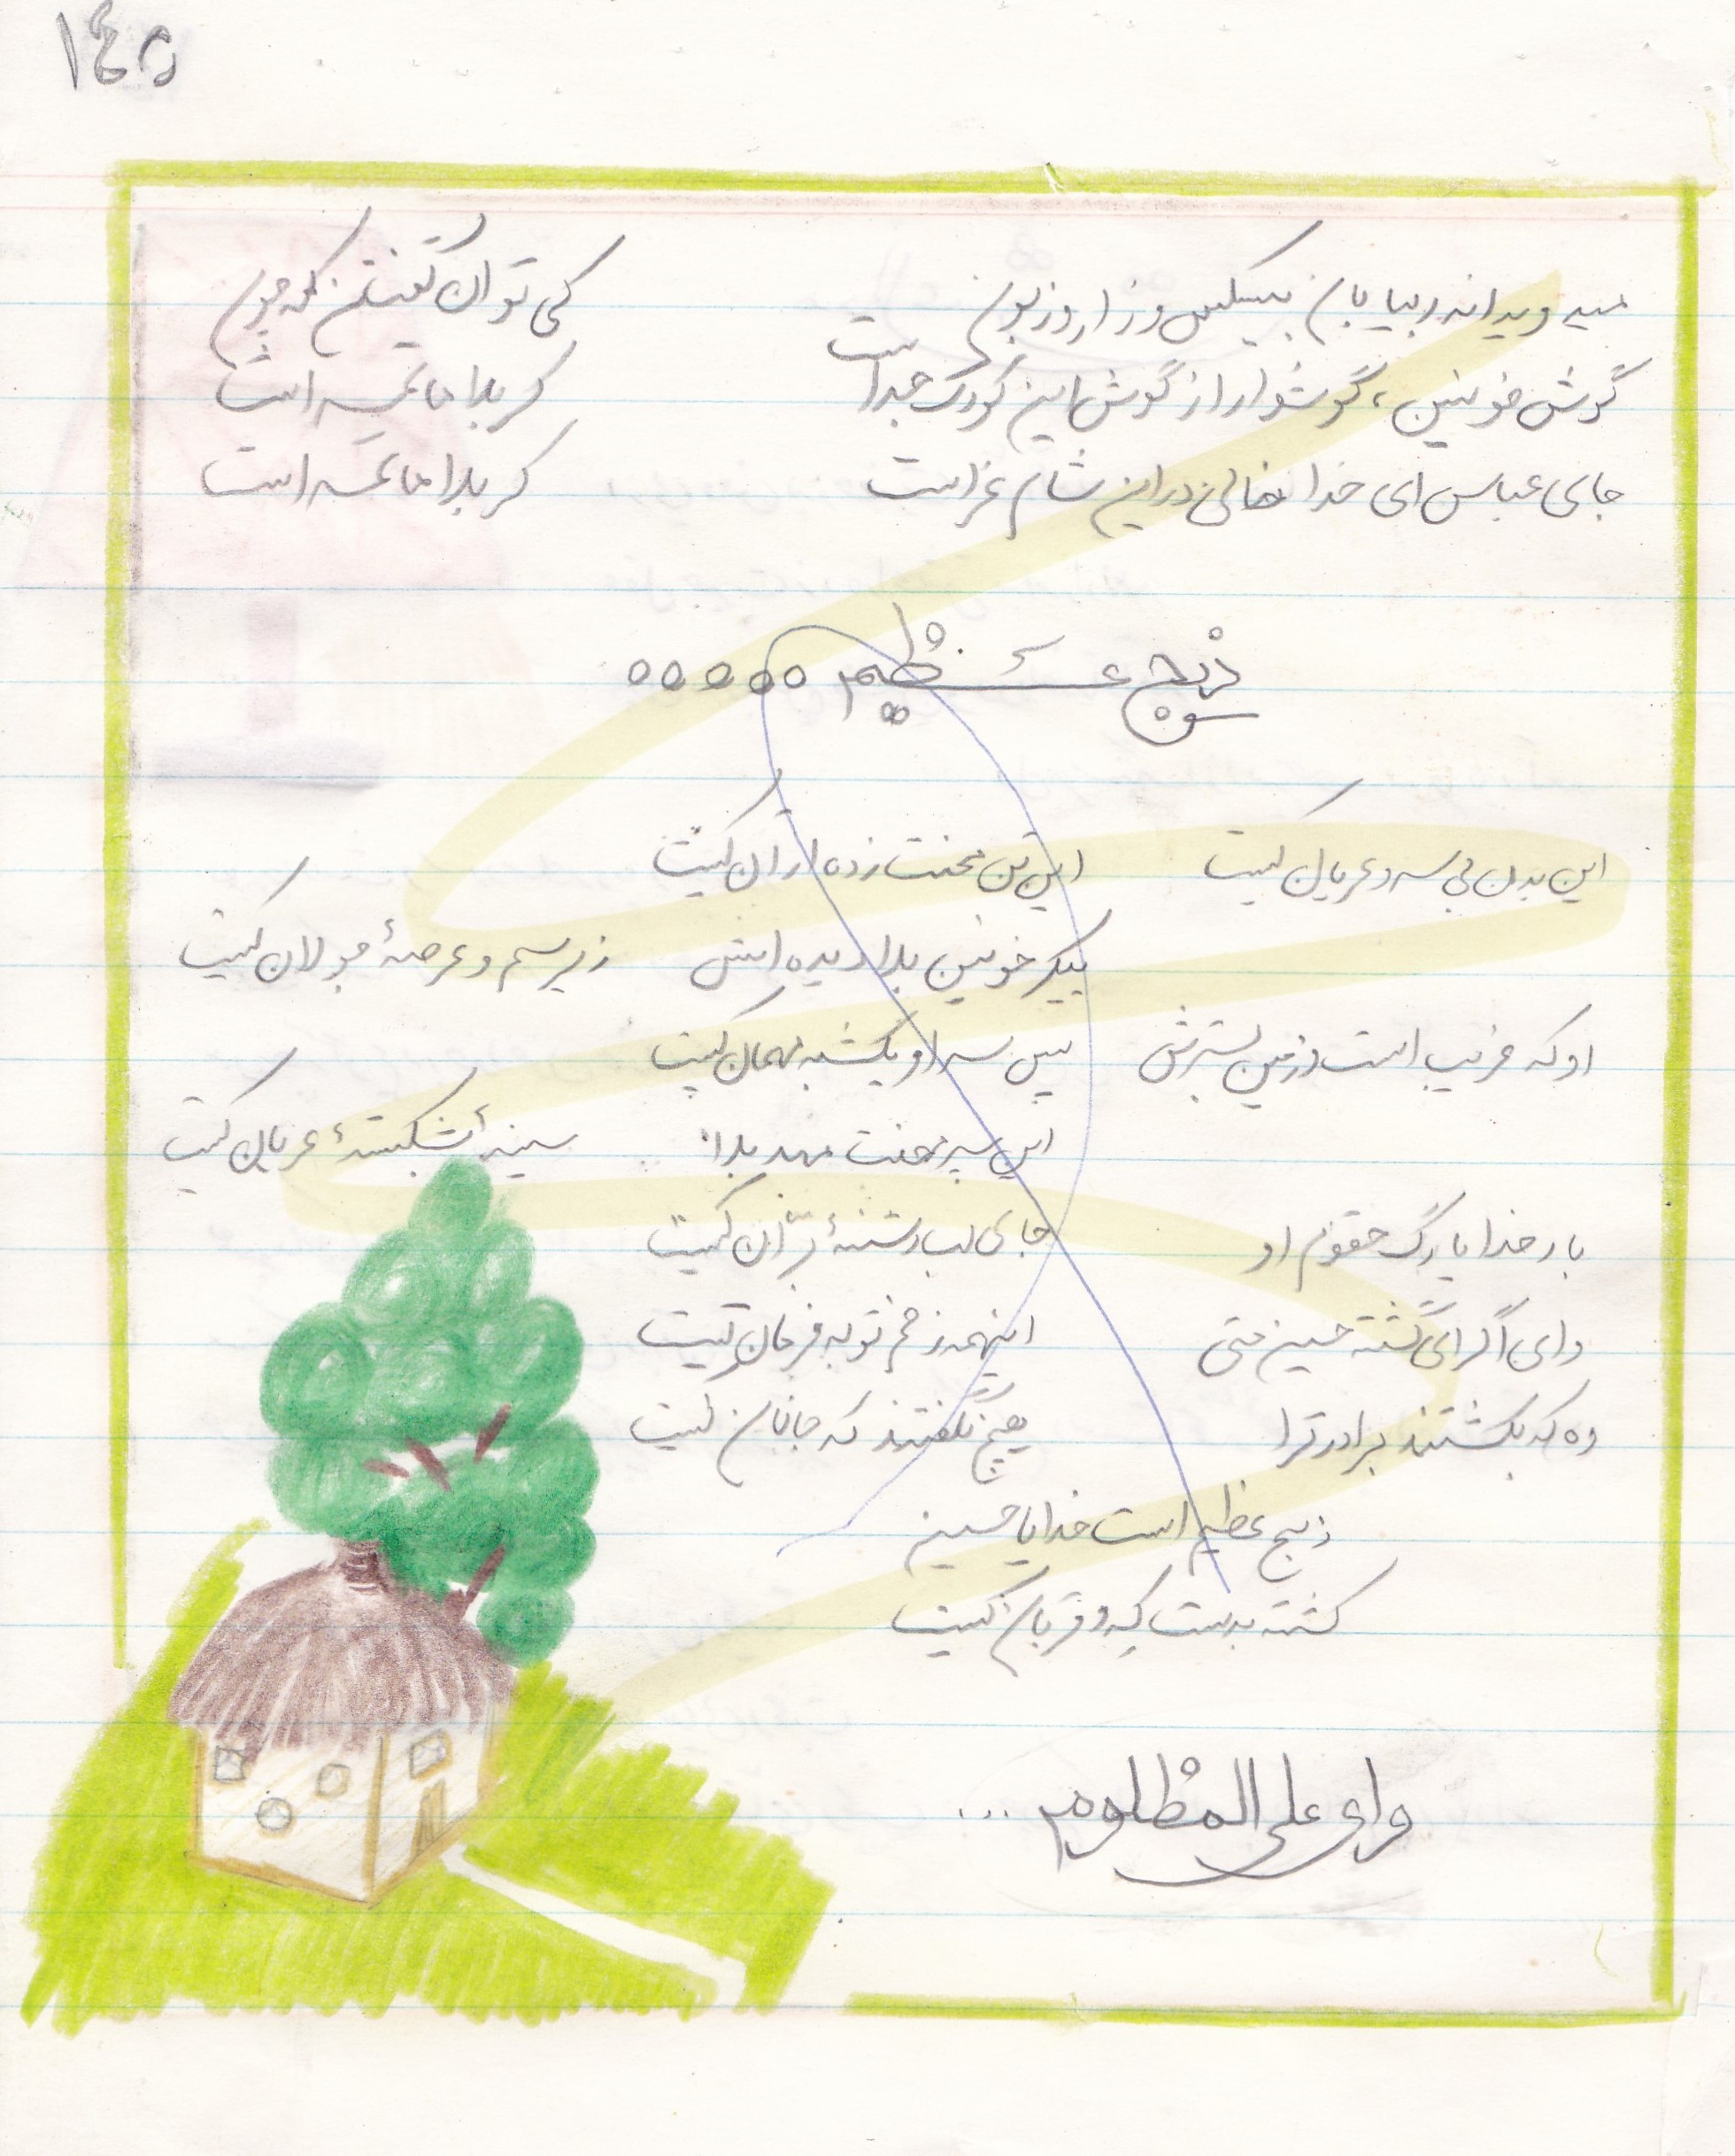 ۱٤۵
میدوید اندر بیابان بیکس و زار و زبون کی توان گفتن که چون
گوش خونین، گوشوار از گوش این کودک جداست کربلا ماتمسراست
جای عباس ای خدا خالی در این شام عزاست کربلا ماتمسراست
ذبح عظیم ۵۵۵۵۵
این بدن بی سر و عریان کیست این تن محنت زده از آن کیست
پیکر خونین بلا دیده اش زیر سم و عرصهٔ جولان کیست
او که غریب است و زمین بسترش پس سر او یکشبه مهمان کیست
این محنت مهد بلا سینهٔ بشکستهٔ عریان کیست
بار خدایا رگ حلقوم او جای لب تشنهٔ کیست
وای اگر ای کشته حسین منی اینهمه زخم تو به فرمان کیست
وه که بکشتند برادر ترا هیچ نگفتند که جانان کیست
ذبح عظیم است خدایا حسین
کشته بدست که و قربان کیست
وای علی المظلوم ...